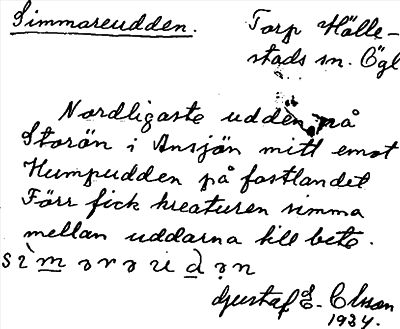 Simmareudden.
Torp Hälle-
stads sn. Ögl
Nordligaste udden på
Storön i Ansjön mitt emot
Humpudden på fastlandet
Förr fick kreaturen simma
mellan uddarna till bete.
Gustaf E. Olsson
1934.